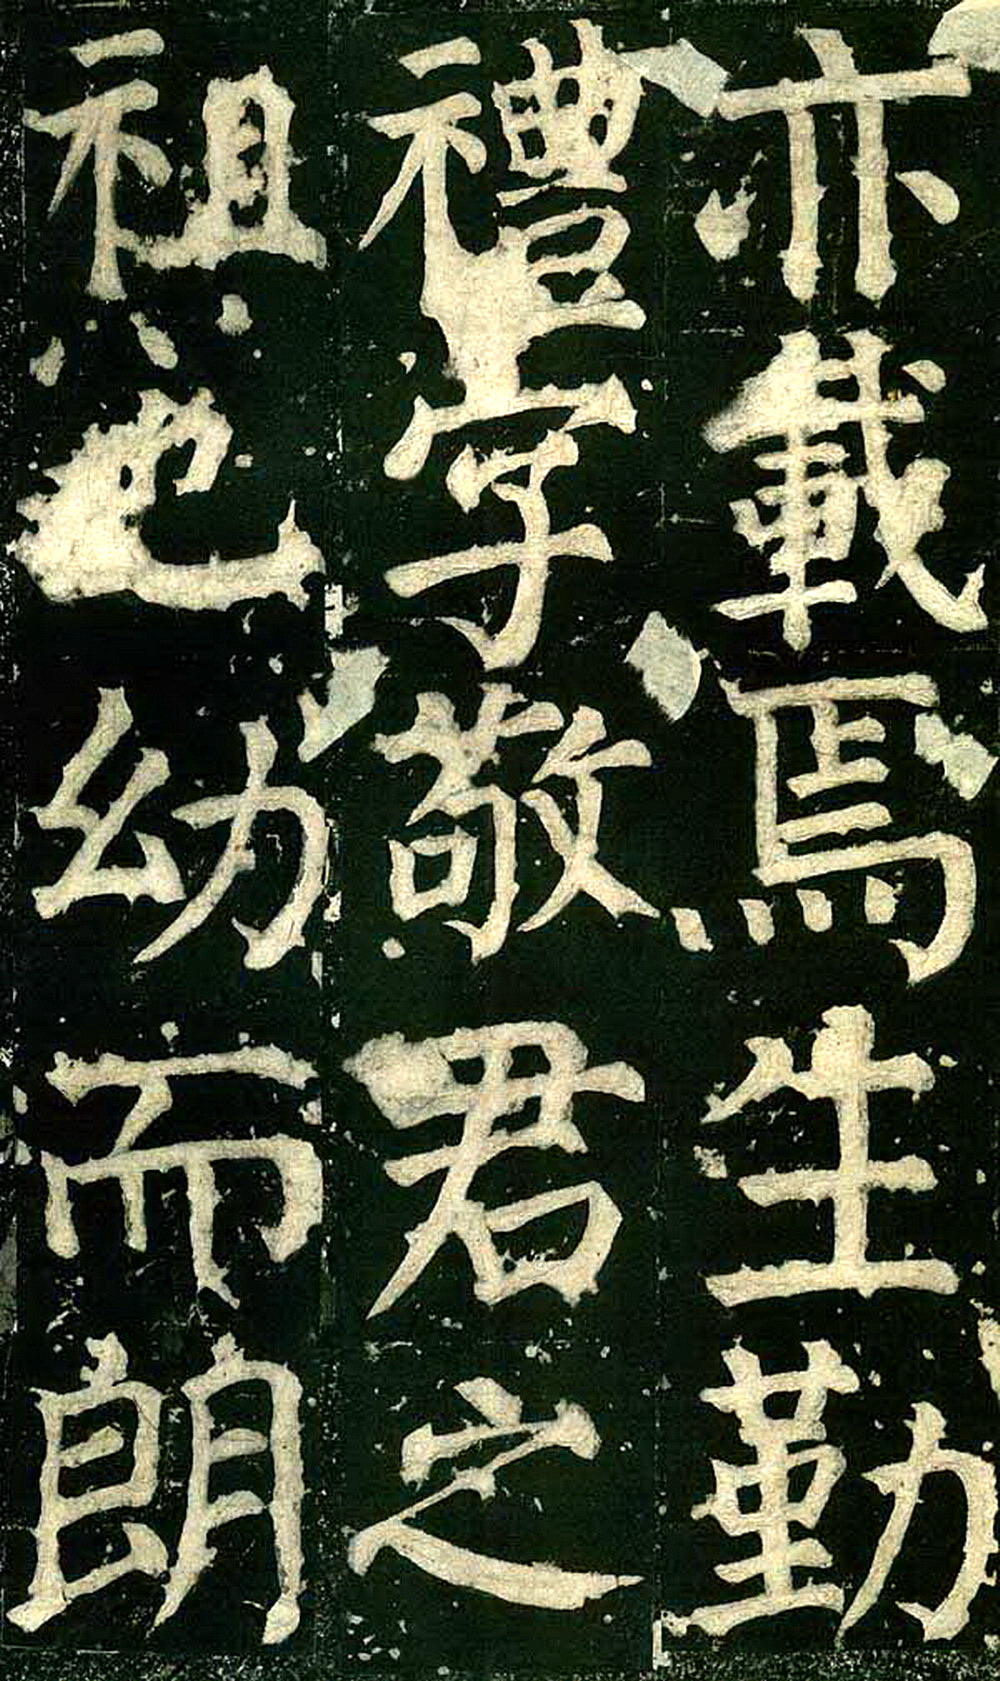 亦載焉生勤
禮字敬君之
祖也幼而朗